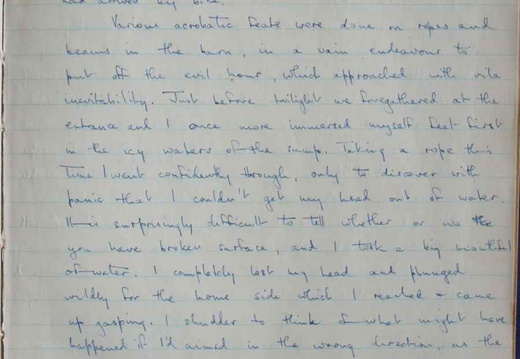 had arrived by bike.
Various acrobatic feats were done on ropes and
beams in the barn, in a vain endeavour to
put off the evil hour, which approached with vile
inevitability. Just before twilight we foregathered at the
entrance and I once more immersed myself feet first
in the icy waters of the sump. Taking a rope this
time I went confidently through, only to discover with
panic that I couldn't get my head out of water.
It is surprisingly difficult to tell whether or no the
you have broken surface, and I took a big mouthful
of water. I completely lost my head and plunged
wildly for the home side which I reached & came
up gasping. I shudder to think of what might have
happened if I'd aimed in the wrong direction, as the